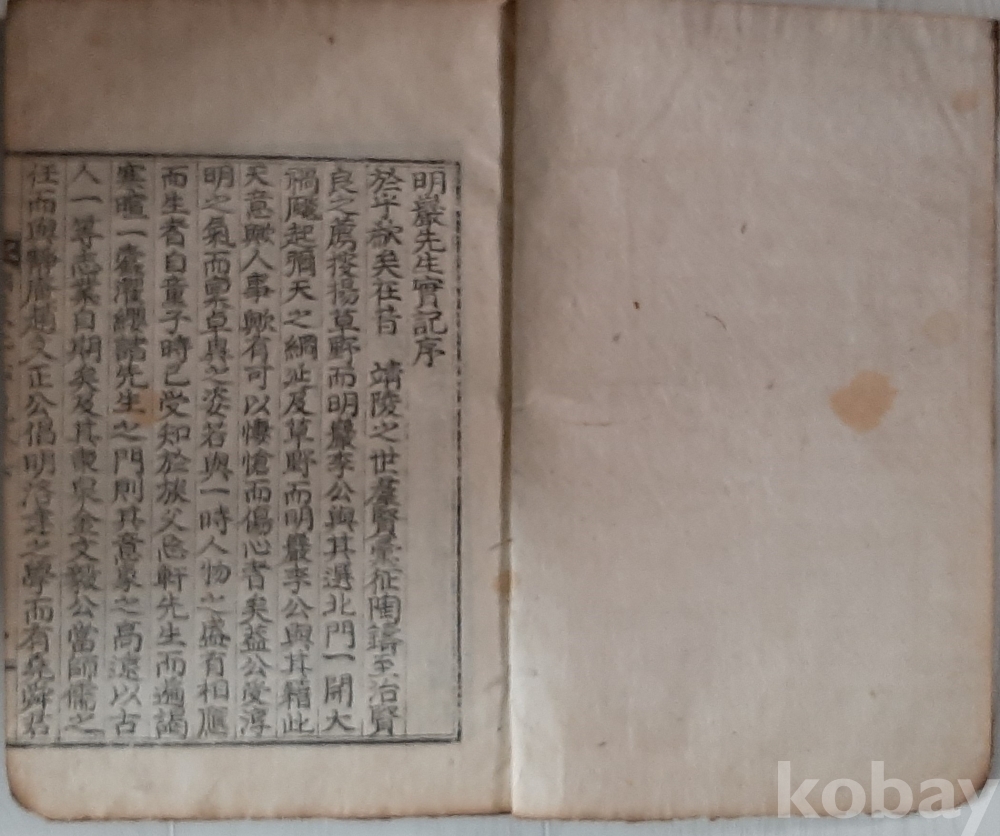 明巖先生實記序
於乎欷矣在昔 靖陵之世羣賢彙征陶鑄至治賢
良之薦按揚草野而明巖李公與其選北門一開大
禍颺起彌天之網延及草野而明巖李公與其籍此
天意歟人事歟有可以悽愴而傷心者矣益公受淳
明之氣而稟卓異之姿若與一時人物之盛有相應
而生者自童子時已受知於族父忘軒先生而遍謁
寒暄一蠹濯纓諸先生之門則其意象之高遠以古
人一等志業自期矣及其金文毅公當師儒之
任而與靜庵趙文正公倡明洛建之學而有堯舜君
kobay